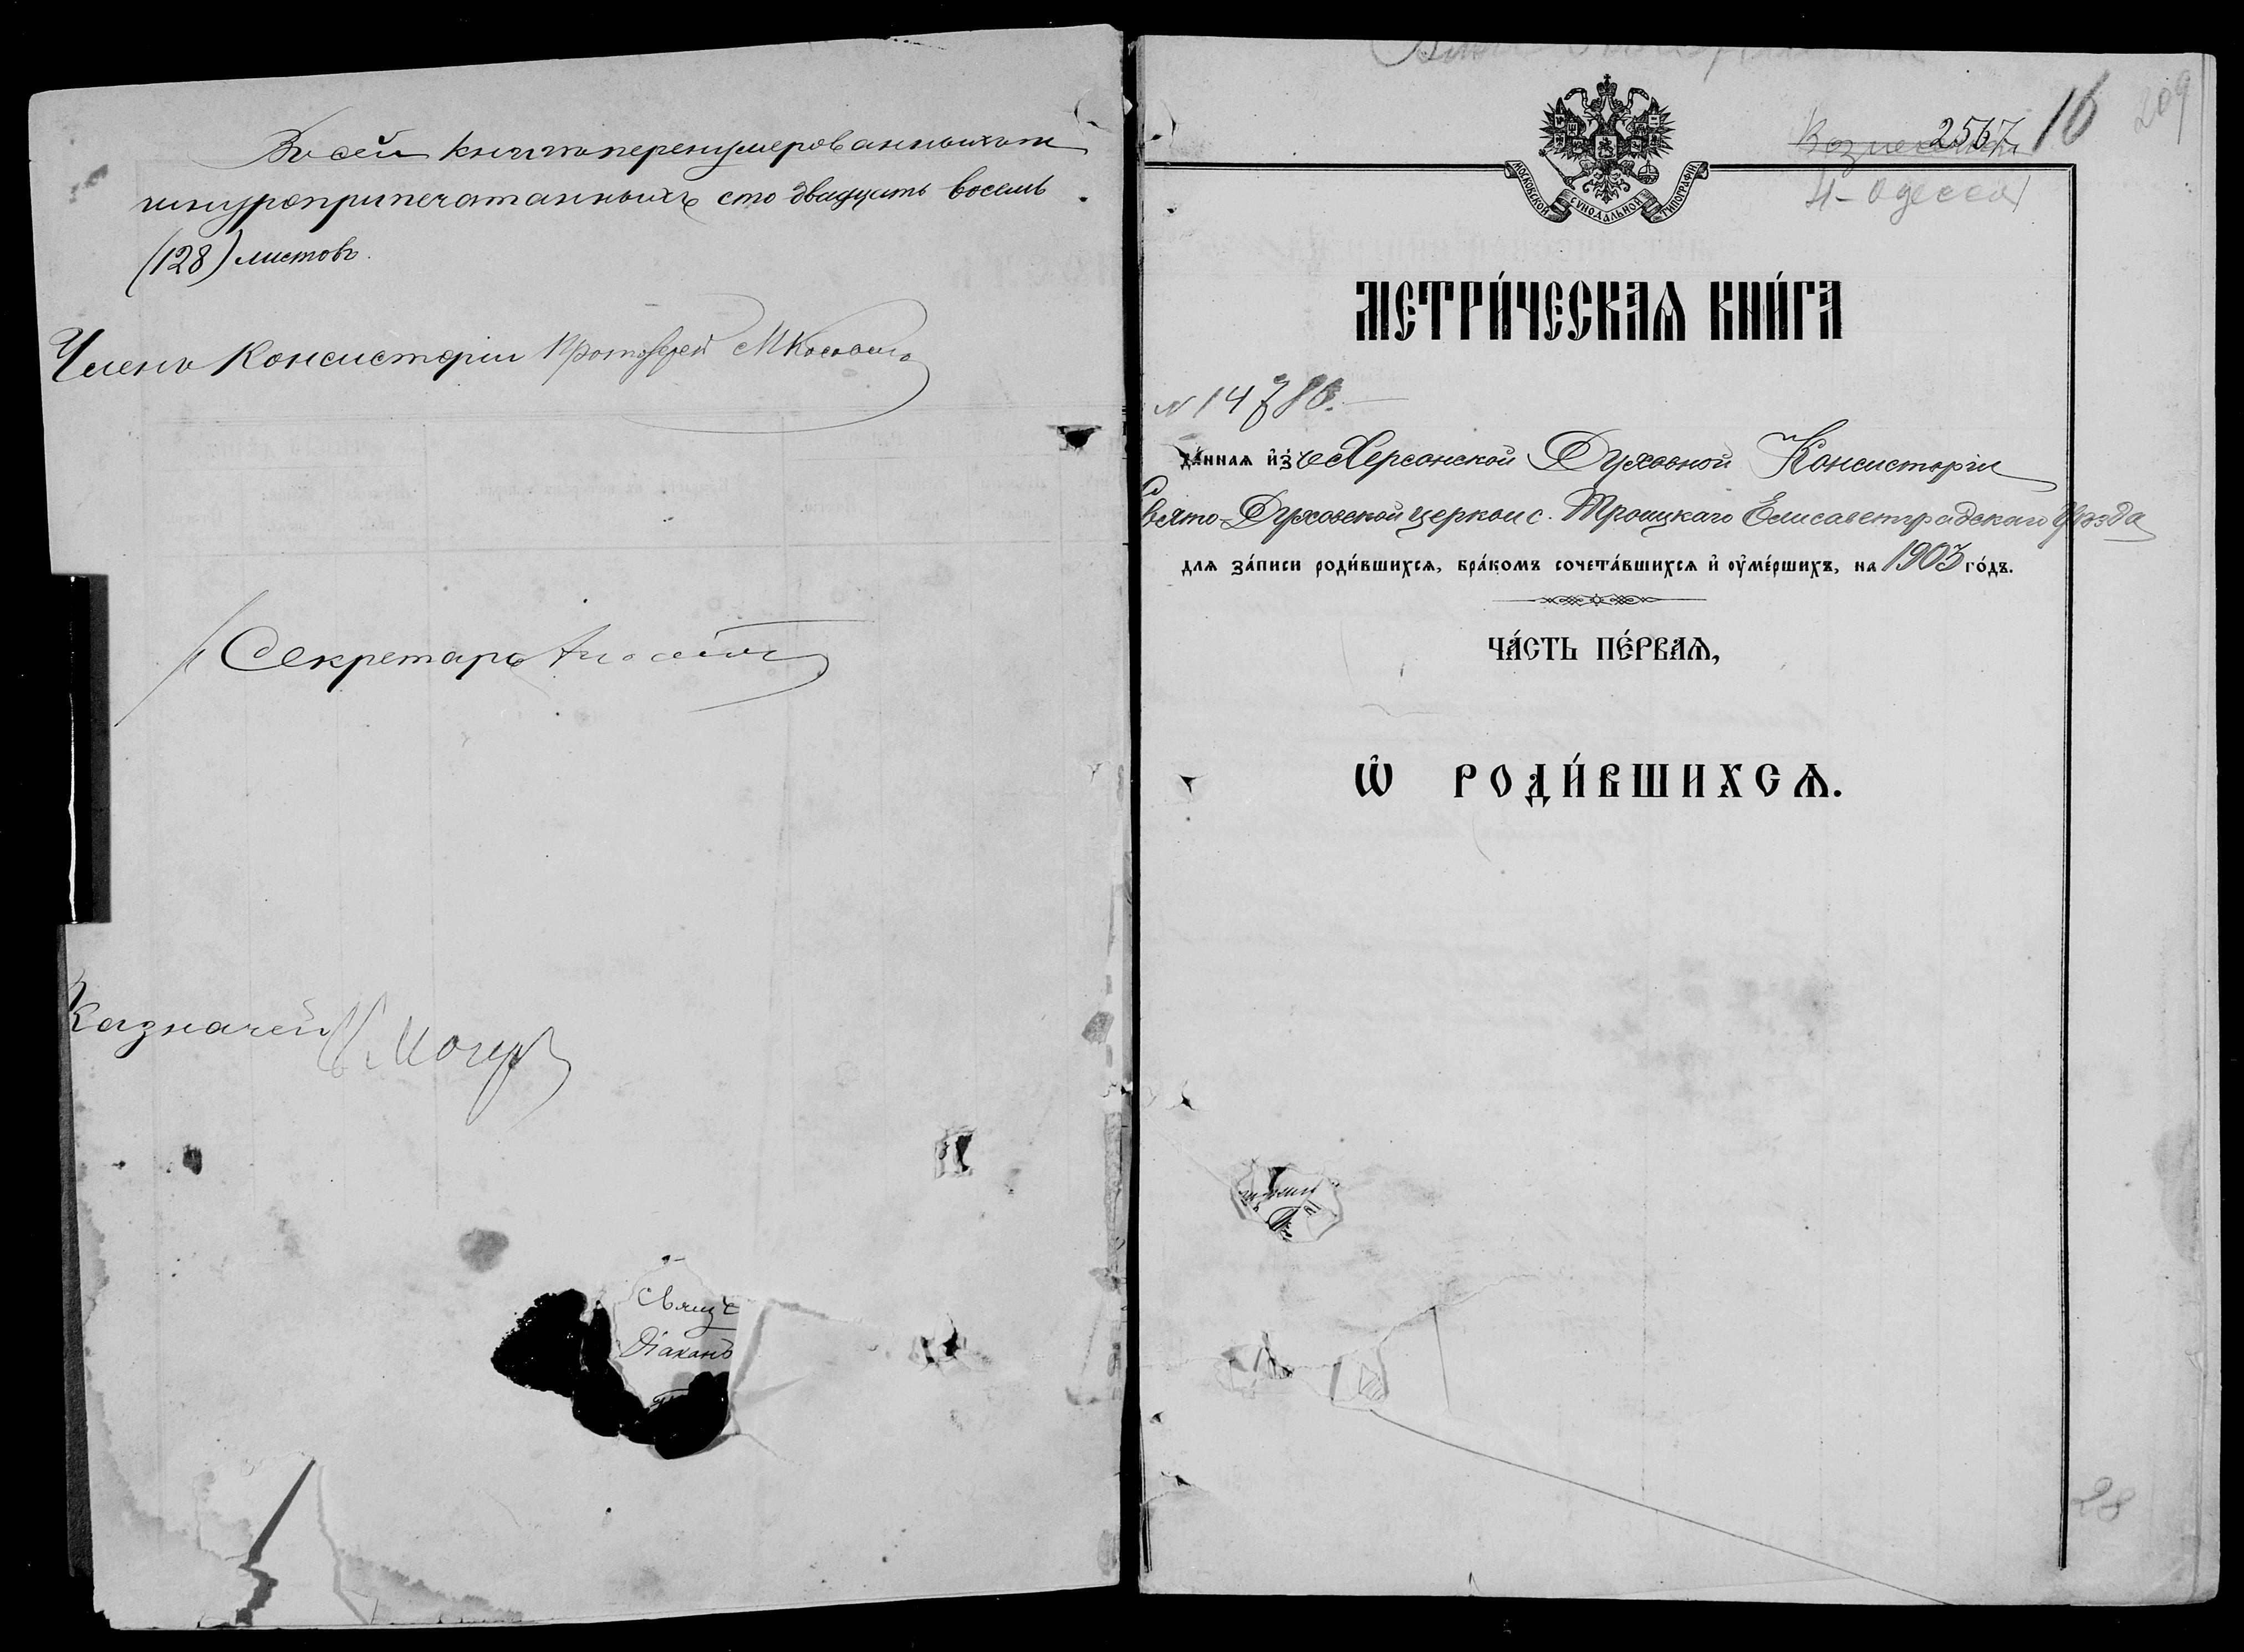 Въ сей книгѣ перенумерованныхъ и
шнуроприпечатанныхъ сто двадцать восемь
(128) листовъ.
Членъ Консисторіи Протоіерей М
Секретарь
Казначей
Свящ
Діаконъ
16
209
2567
Н-Одесса
МОСКОВСКОЙ СѴНОДАЛЬНОЙ ТИПОГРАФІИ
МЕТРИ́ЧЕСКАѦ КНИ́ГА
N 14786.
да́ннаѧ и҆зъ Херсонской Духовной Консисторіи
Свято-Духовской церкви с. Троицкаго Елисаветградскаго уѣзда
для за́писи роди́вшихсѧ, бра́комъ сочета́вшихсѧ и҆ ᲂу҆ме́ршихъ, на 1903 го́дъ.
ЧА́СТЬ ПЕ́РВАѦ,
Ѡ҆ РОДИ́ВШИХСѦ.
28